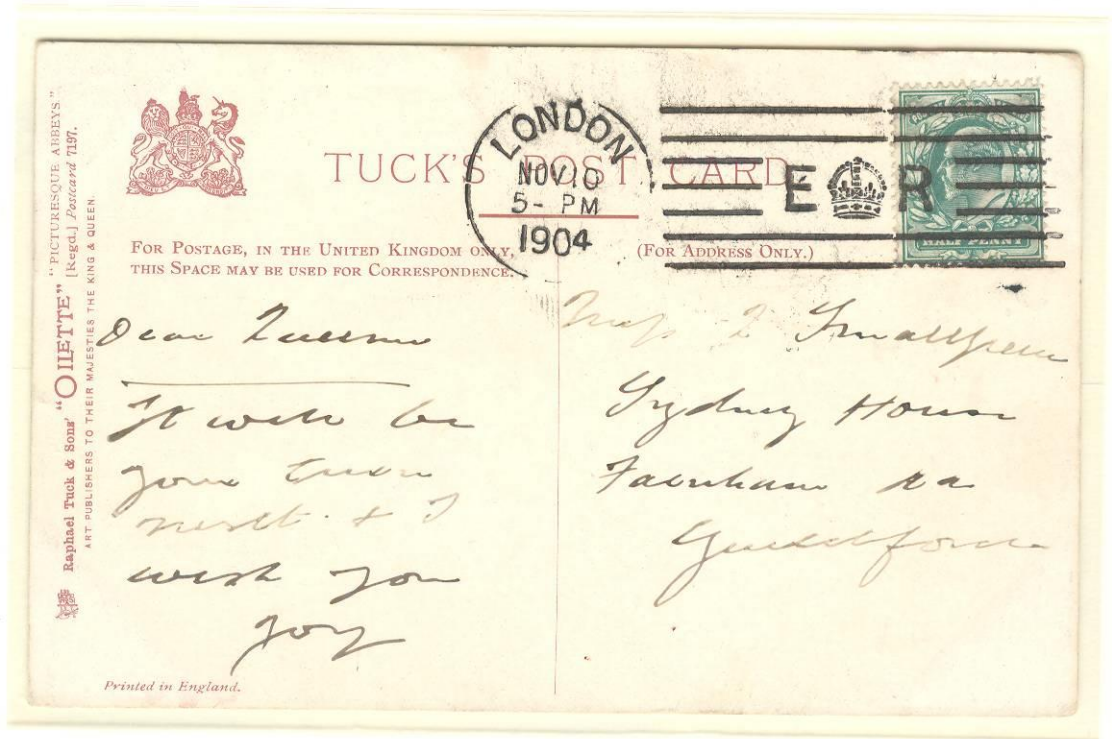 "PICTURESQUE ABBEYS."
Raphael Tuck & Sons' "OILETTE" [Regd.] Postcard 7197.
ART PUBLISHERS TO THEIR MAJESTIES THE KING & QUEEN.
TUCK'S POST CARD
LONDON
NOV 10
5- PM
1904
E R
HALF PENNY
FOR POSTAGE, IN THE UNITED KINGDOM ONLY,
THIS SPACE MAY BE USED FOR CORRESPONDENCE.
(FOR ADDRESS ONLY.)
Dear
It will be
your turn
next & I
wish you
joy
Smallpeice
Sydney House
Farnham Rd
Guildford
Printed in England.